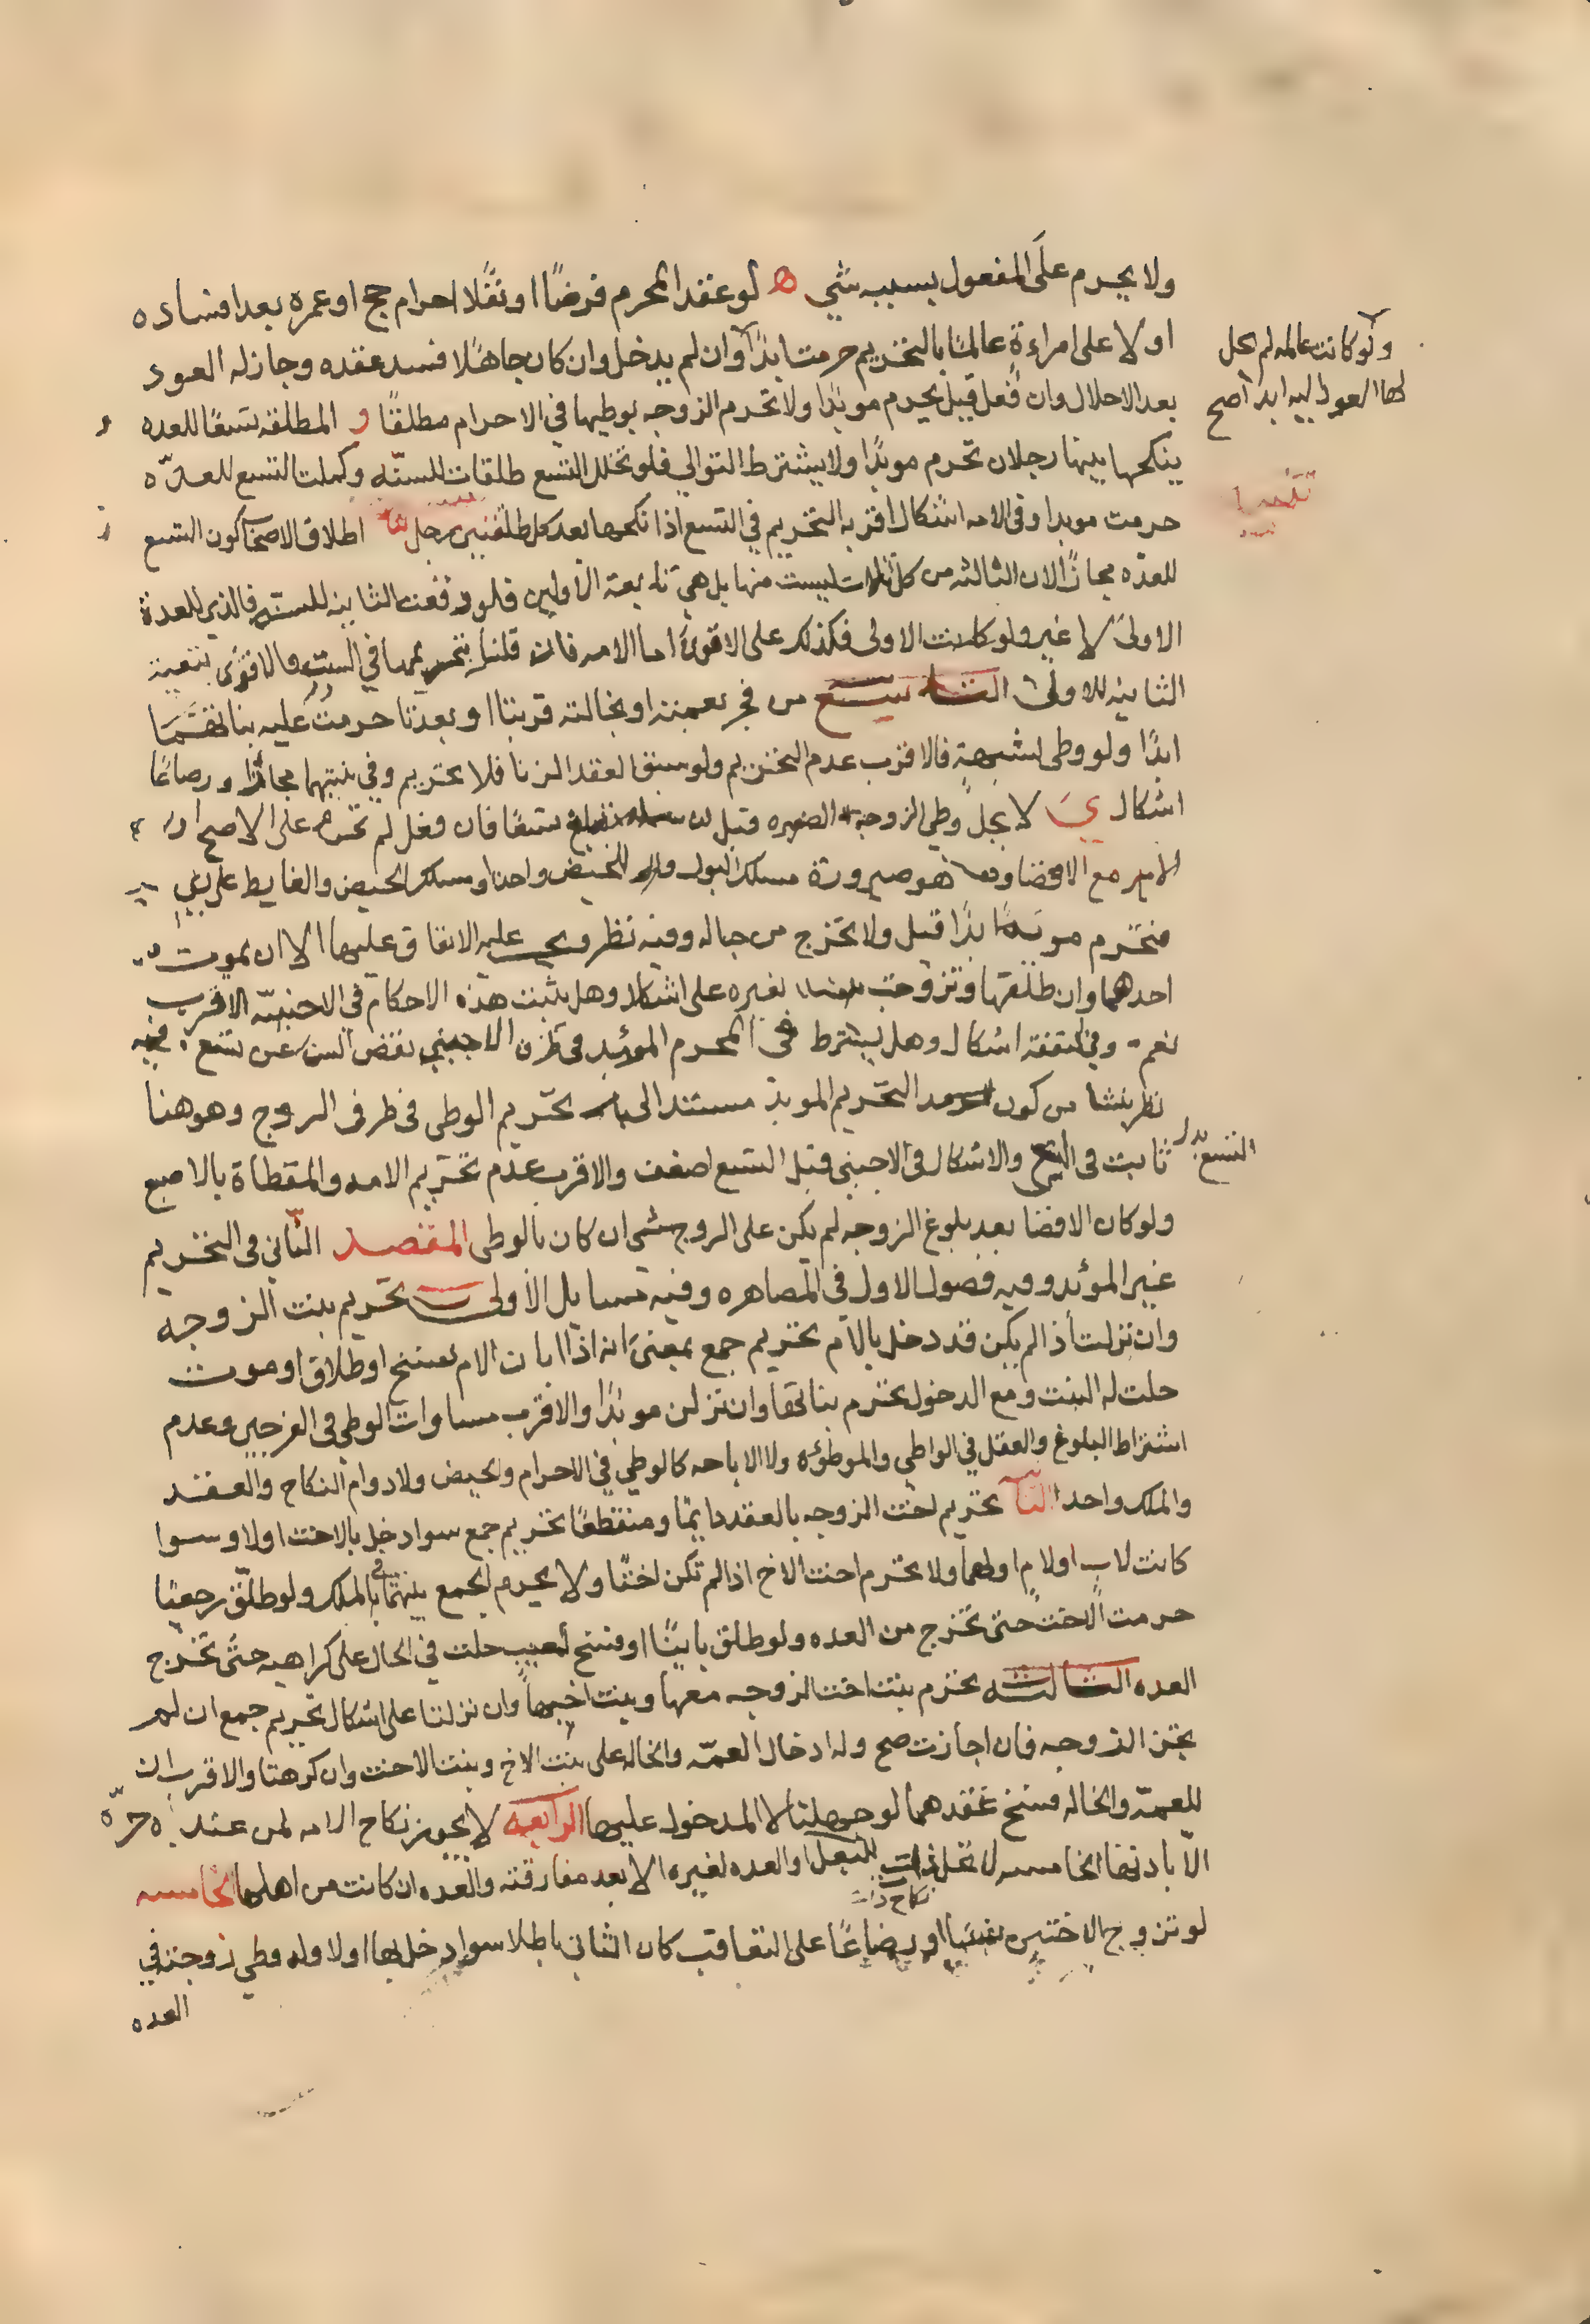 ولا يحرم على المفعول بسببه شي ه لو عقد المحرم فرضًا او نفلا احرام حج او عمره بعد افساده
او لا على امراءة عالمًا بالتحريم حرمت ابدًا وان لم يدخل وان كان جاهلا فسد عقده وجاز له العود
ولو كانت عالمه لم يحل
لها العود اليه ابدا صح
بعد الاحلال وان فعل قيل يحرم موبدًا ولا تحرم الزوجه بوطيها في الاحرام مطلقًا و المطلقه تسعًا للعده
ينكحها بينها رجلان تحرم موبدًا ولا يشترط التوالي فلو تخلل التسع طلقات للسنّه وكملت التسع للعدّه
حرمت موبدا وفى الامه اشكال اقربه التحريم في التسع اذا نكحها بعد كل طلقتين رجل اطلاق الاصحاب كون التسع
للعدّه مجازًا لان الثالثه من كل ثلاث ليست منها بل هي تابعة الاولين فلو وقعت الثانيه للسنه فالذي للعدة
الاولى لا غير ولو كانت الاولى فكذلك على الاقوى اما الامه فان قلنا بتحريمها في الست فالاقوى بتعية
الثانيه للاولى من فجر بعمته او بخالته قربتا او بعدتا حرمت عليه بناتهما
ابدًا ولو وطى لشبهة فالاقرب عدم التحريم ولو سبق العقد الزنا فلا تحريم وفي بنتيهما مجازًا ورضاعًا
اشكال ي لا يحل وطي الزوجه الصغيره قبل ان تبلغ تسعًا فان فعل لم تحرم على الاصح
الا مع الافضا وهو صيرورة مسلك البول والحيض واحدا او مسلك الحيض والغايط على راي
فتحرم موبدًا قيل ولا تخرج من حباله وفيه نظر ويجب عليه الانفاق عليها الا ان يموت
احدهما وان طلقها وتزوجت بغيره على اشكال وهل يثبت هذه الاحكام في الاجنبيّه الاقرب
نعم وفي النفقه اشكال وهل يشترط في المحرم الموبد في طرف الاجنبي نقض السن عن تسع فيه
نظر ينشا من كون التحريم الموبد مستندا الى تحريم الوطى فى طرف الزوج وهو هنا
ثابت فى والاشكال فى الاجنبى قبل التسع اضعف والاقرب عدم تحريم الامه والمفضاة بالاصبع
ولو كان الافضا بعد بلوغ الزوجه لم يكن على الزوج شى ان كان بالوطى المقصد الثاني فى التحريم
غير الموبد وفيه فصول الاول في المصاهره وفيه مسايل الاولى تحريم بنت الزوجه
وان نزلت اذا لم يكن قد دخل بالام تحريم جمع بمعنى انه اذا ابان الام بفسخ او طلاق او موت
حلت له البنت ومع الدخول تحرم بناتها وان نزلن موبدًا والاقرب مساوات الوطي فى الفرجين وعدم
اشتراط البلوغ والعقل في الواطي والموطوٴه ولا الاباحه كالوطي في الاحرام والحيض ولا دوام النكاح والعقد
والملك واحد تحريم اخت الزوجه بالعقد دايمًا ومنقطعًا تحريم جمع سوا دخل بالاخت اولا وسوا
كانت لاب او لام او لهما ولا تحرم اخت الاخ اذا لم تكن اختًا ولا يحرم الجمع بينهما في الملك ولو طلّق رجعيًا
حرمت الاخت حتى تخرج من العده ولو طلق باينًا او فسخ لعيب حلت في الحال على كراهيه حتى تخرج
العده الثالثه تحرم بنت اخت الزوجه معها وبنت اخيها وان نزلتا على اشكال تحريم جمع ان لم
تجز الزوجه فان اجازت صح وله ادخال العمّه والخاله على بنت الاخ وبنت الاخت وان كرهتا والاقرب ان
للعمّه والخاله فسخ عقدهما لو جهلتا لا المدخول عليها الرابعه لا يجوز نكاح الامه لمن عنده حرّه
الا باذنها الخامسه لا تحل ذات البعل او العده لغيره الا بعد مفارقته والعده ان كانت من اهلها الخامسه
نكاح ذات
لو تزوج الاختين نسبًا او رضاعًا على التعاقب كان الثانى باطلا سوا دخل بها اولا وله وطي زوجته في
العده